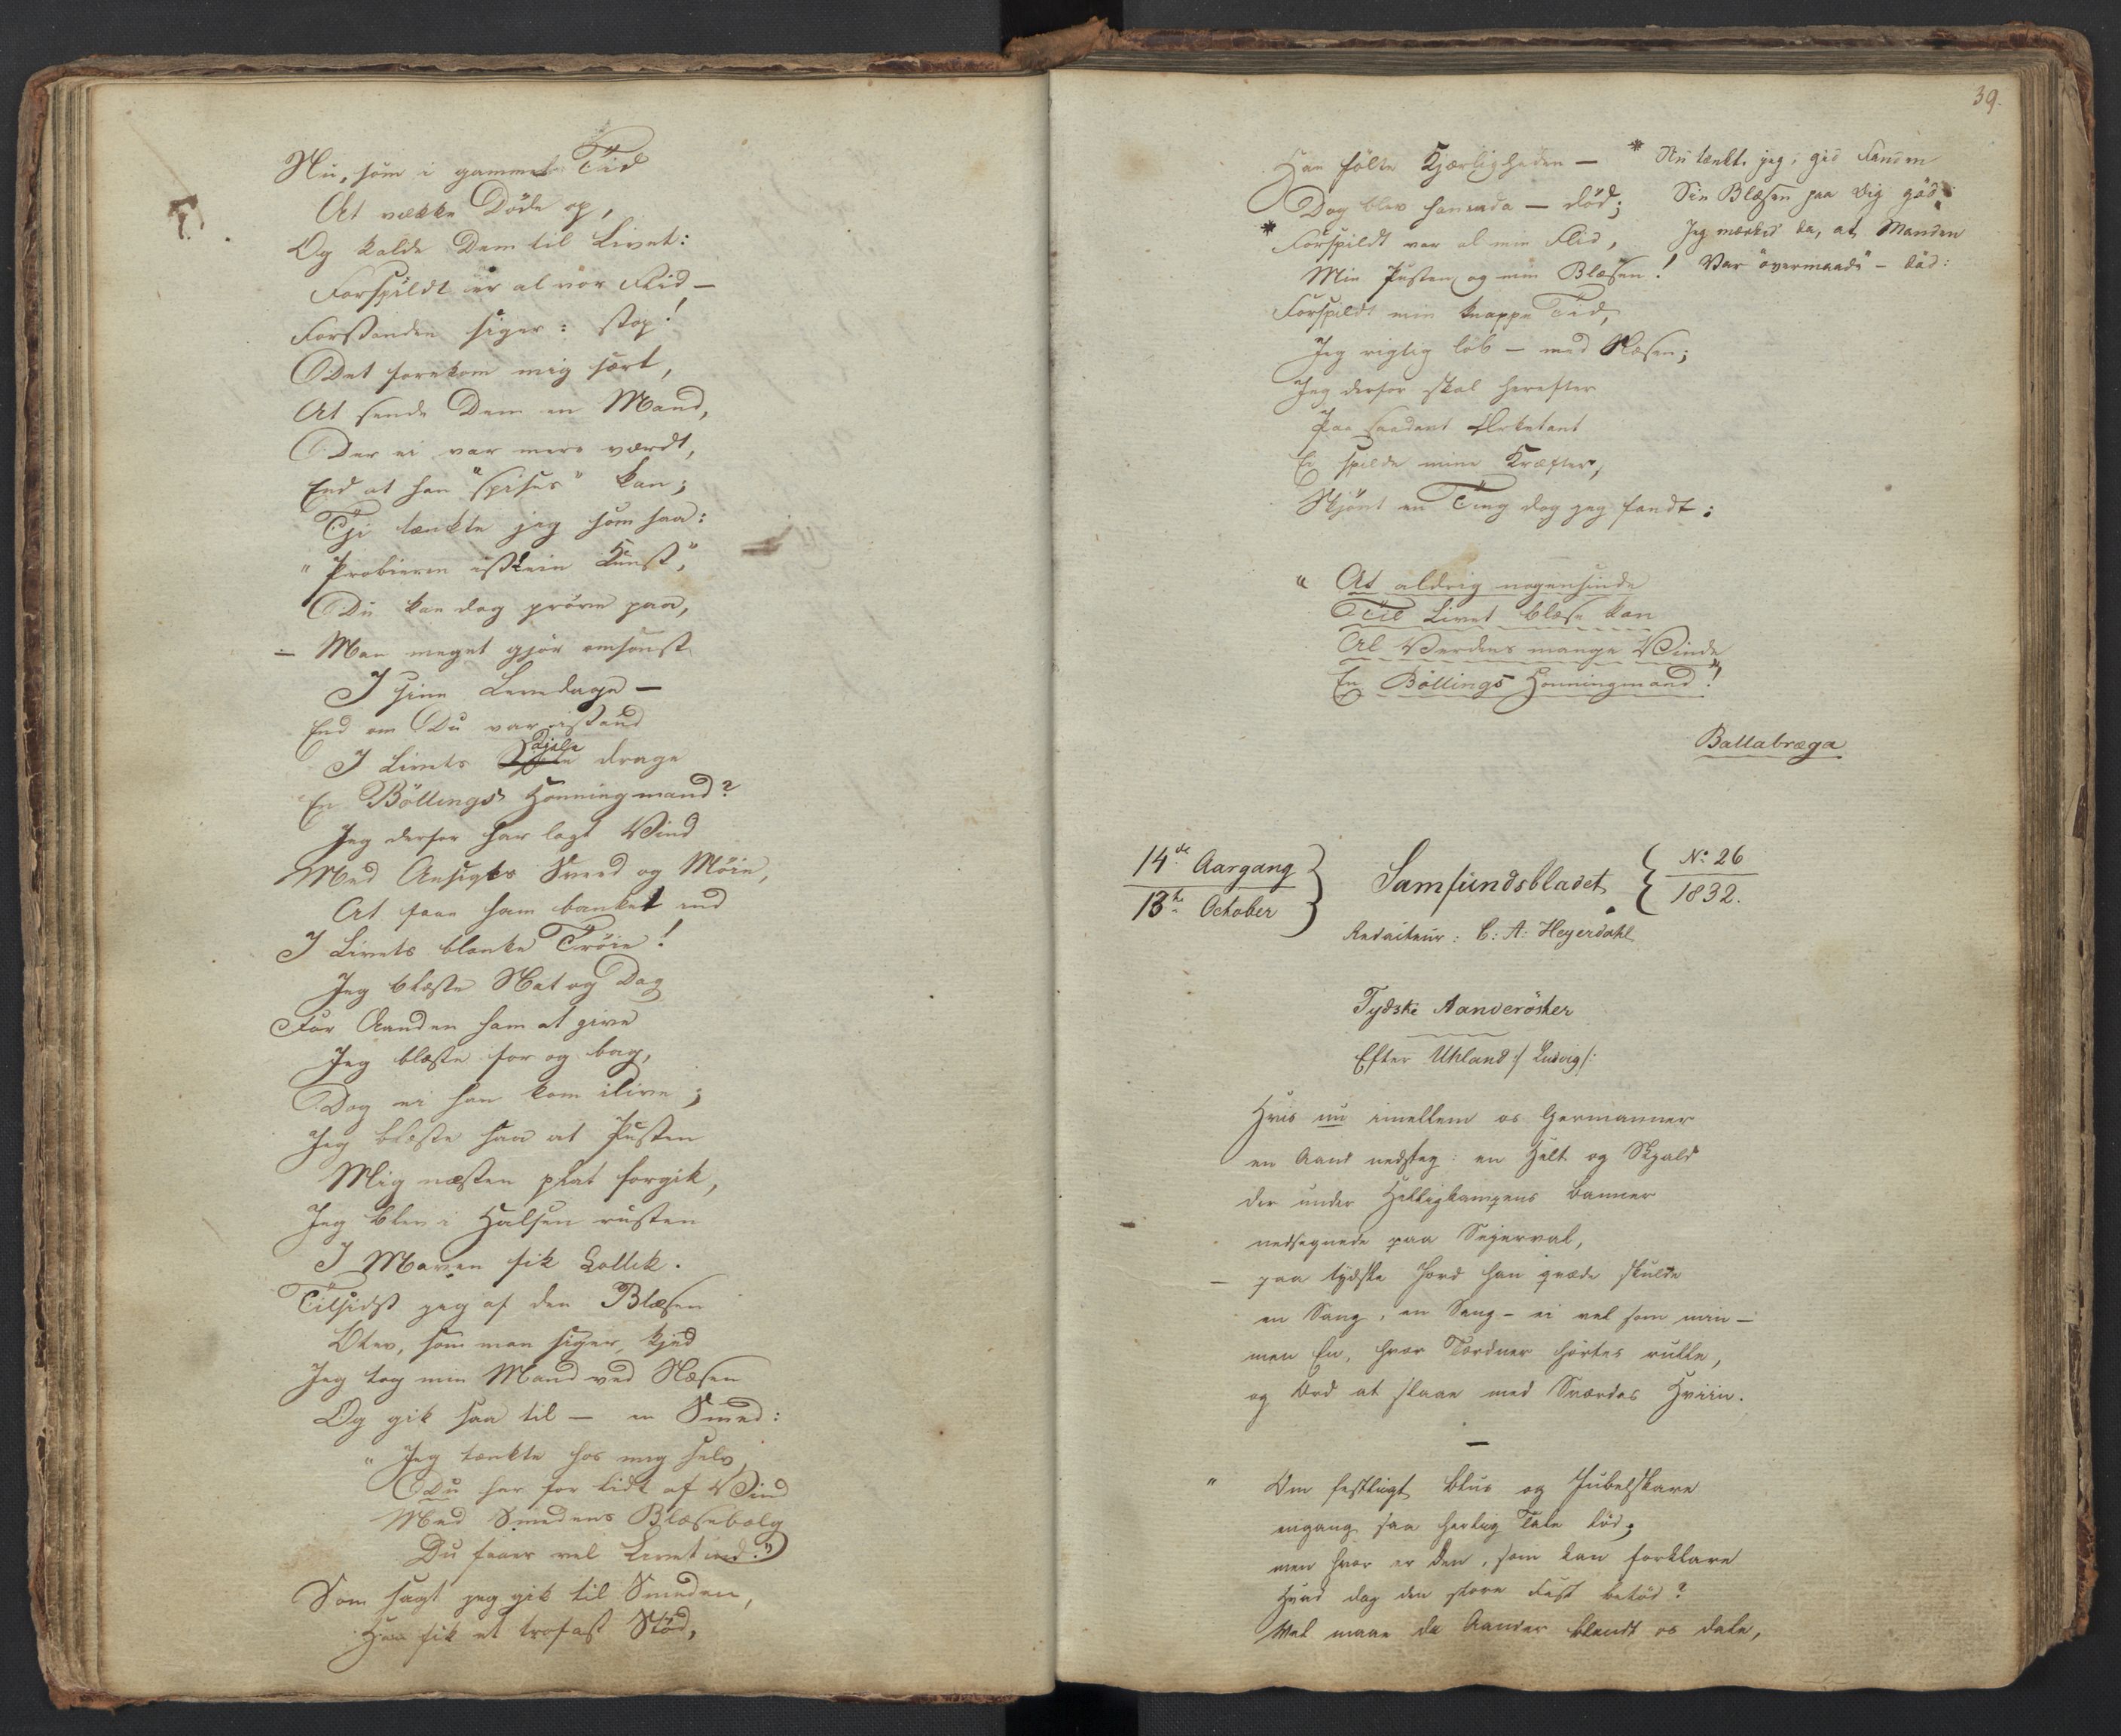 Nu, som i gammel Tid
At vække Døde op,
Og kalde Dem til Livet:
Forspildt er al vor Flid —
Forstanden siger: stop!
Det forekom mig sært,
At sende Dem en Mand,
Der ei var mere værdt,
End at han "spises" kan;
Thi tænkte jeg som saa:
"Probieren ist kein Kunst",
Du kan dog prøve paa,
— Man meget gjør omsonst
I sine Levedage —
End om Du var istand
I Livets Kjole drage
En Böllings Honningmand?
Jeg derfor har lagt Vind
Med Ansigts Sveed og Møie,
At faae ham banket ind
I Livets blanke Trøie!
Jeg blæste Nat og Dag
For Aanden ham at give
Jeg blæste for og bag,
Dog ei han kom ilive;
Jeg blæste saa at Pusten
Mig næsten plat forgik,
Jeg blev i Halsen rusten
I Maven fik Kollik.
Tilsidst jeg af den Blæsen
Blev, som man siger, kjed
Jeg tog min Mand ved Næsen
Og gik saa til — en Smed:
"Jeg tænkte hos mig selv,
Du har for lidt af Vind
Med Smedens Blæsebælg
Du faaer vel Livet ind."
Som sagt jeg gik til Smeden,
Han fik et trofast Stød,
39.
Han følte Kjærligheden —
Dog blev han enda — død;
* Forspildt var al min Flid,
Min Pusten og min Blæsen!
Forspildt min knappe Tid,
Jeg rigtig løb — med Næsen;
Jeg derfor skal herefter
Paa saadant
Ei spilde mine Kræfter,
Skjønt en Ting dog jeg fandt:
* Nu tænkte jeg, gid Fanden
Sin Blæsen paa dig gød:
Jeg mærked da, at Manden
Var "overmaade" — død:
"At aldrig nogensinde
Til Livet blæse kan
Al Verdens mange Vinde
En Böllings Honningmand!"
Ballabræga
14de Aargang
13te October
Samfundsbladet
No. 26
1832.
Redacteur: C: A: Heyerdahl
Tydske Aanderöster
Efter Uhland :/ Ludvig /:
Hvis nu imellem os Germanner
en Aand nedsteg: en Helt og Skjald
der under Helligkampens Banner
nedsegnede paa Seierval,
— paa tydske Jord han qvæde skulde
en Sang, en Sang – ei vel som min —
men En, hvor Tordner hørtes rulle,
og Ord at slaae med Sværdes Hviin.
—
"Om festligt Blus og Jubelskare
engang saa herlig Tale lød;
men hvor er den, som kan forklare
Hvad dog den store Fest betød?
Vel maae da Aander blandt os dale,